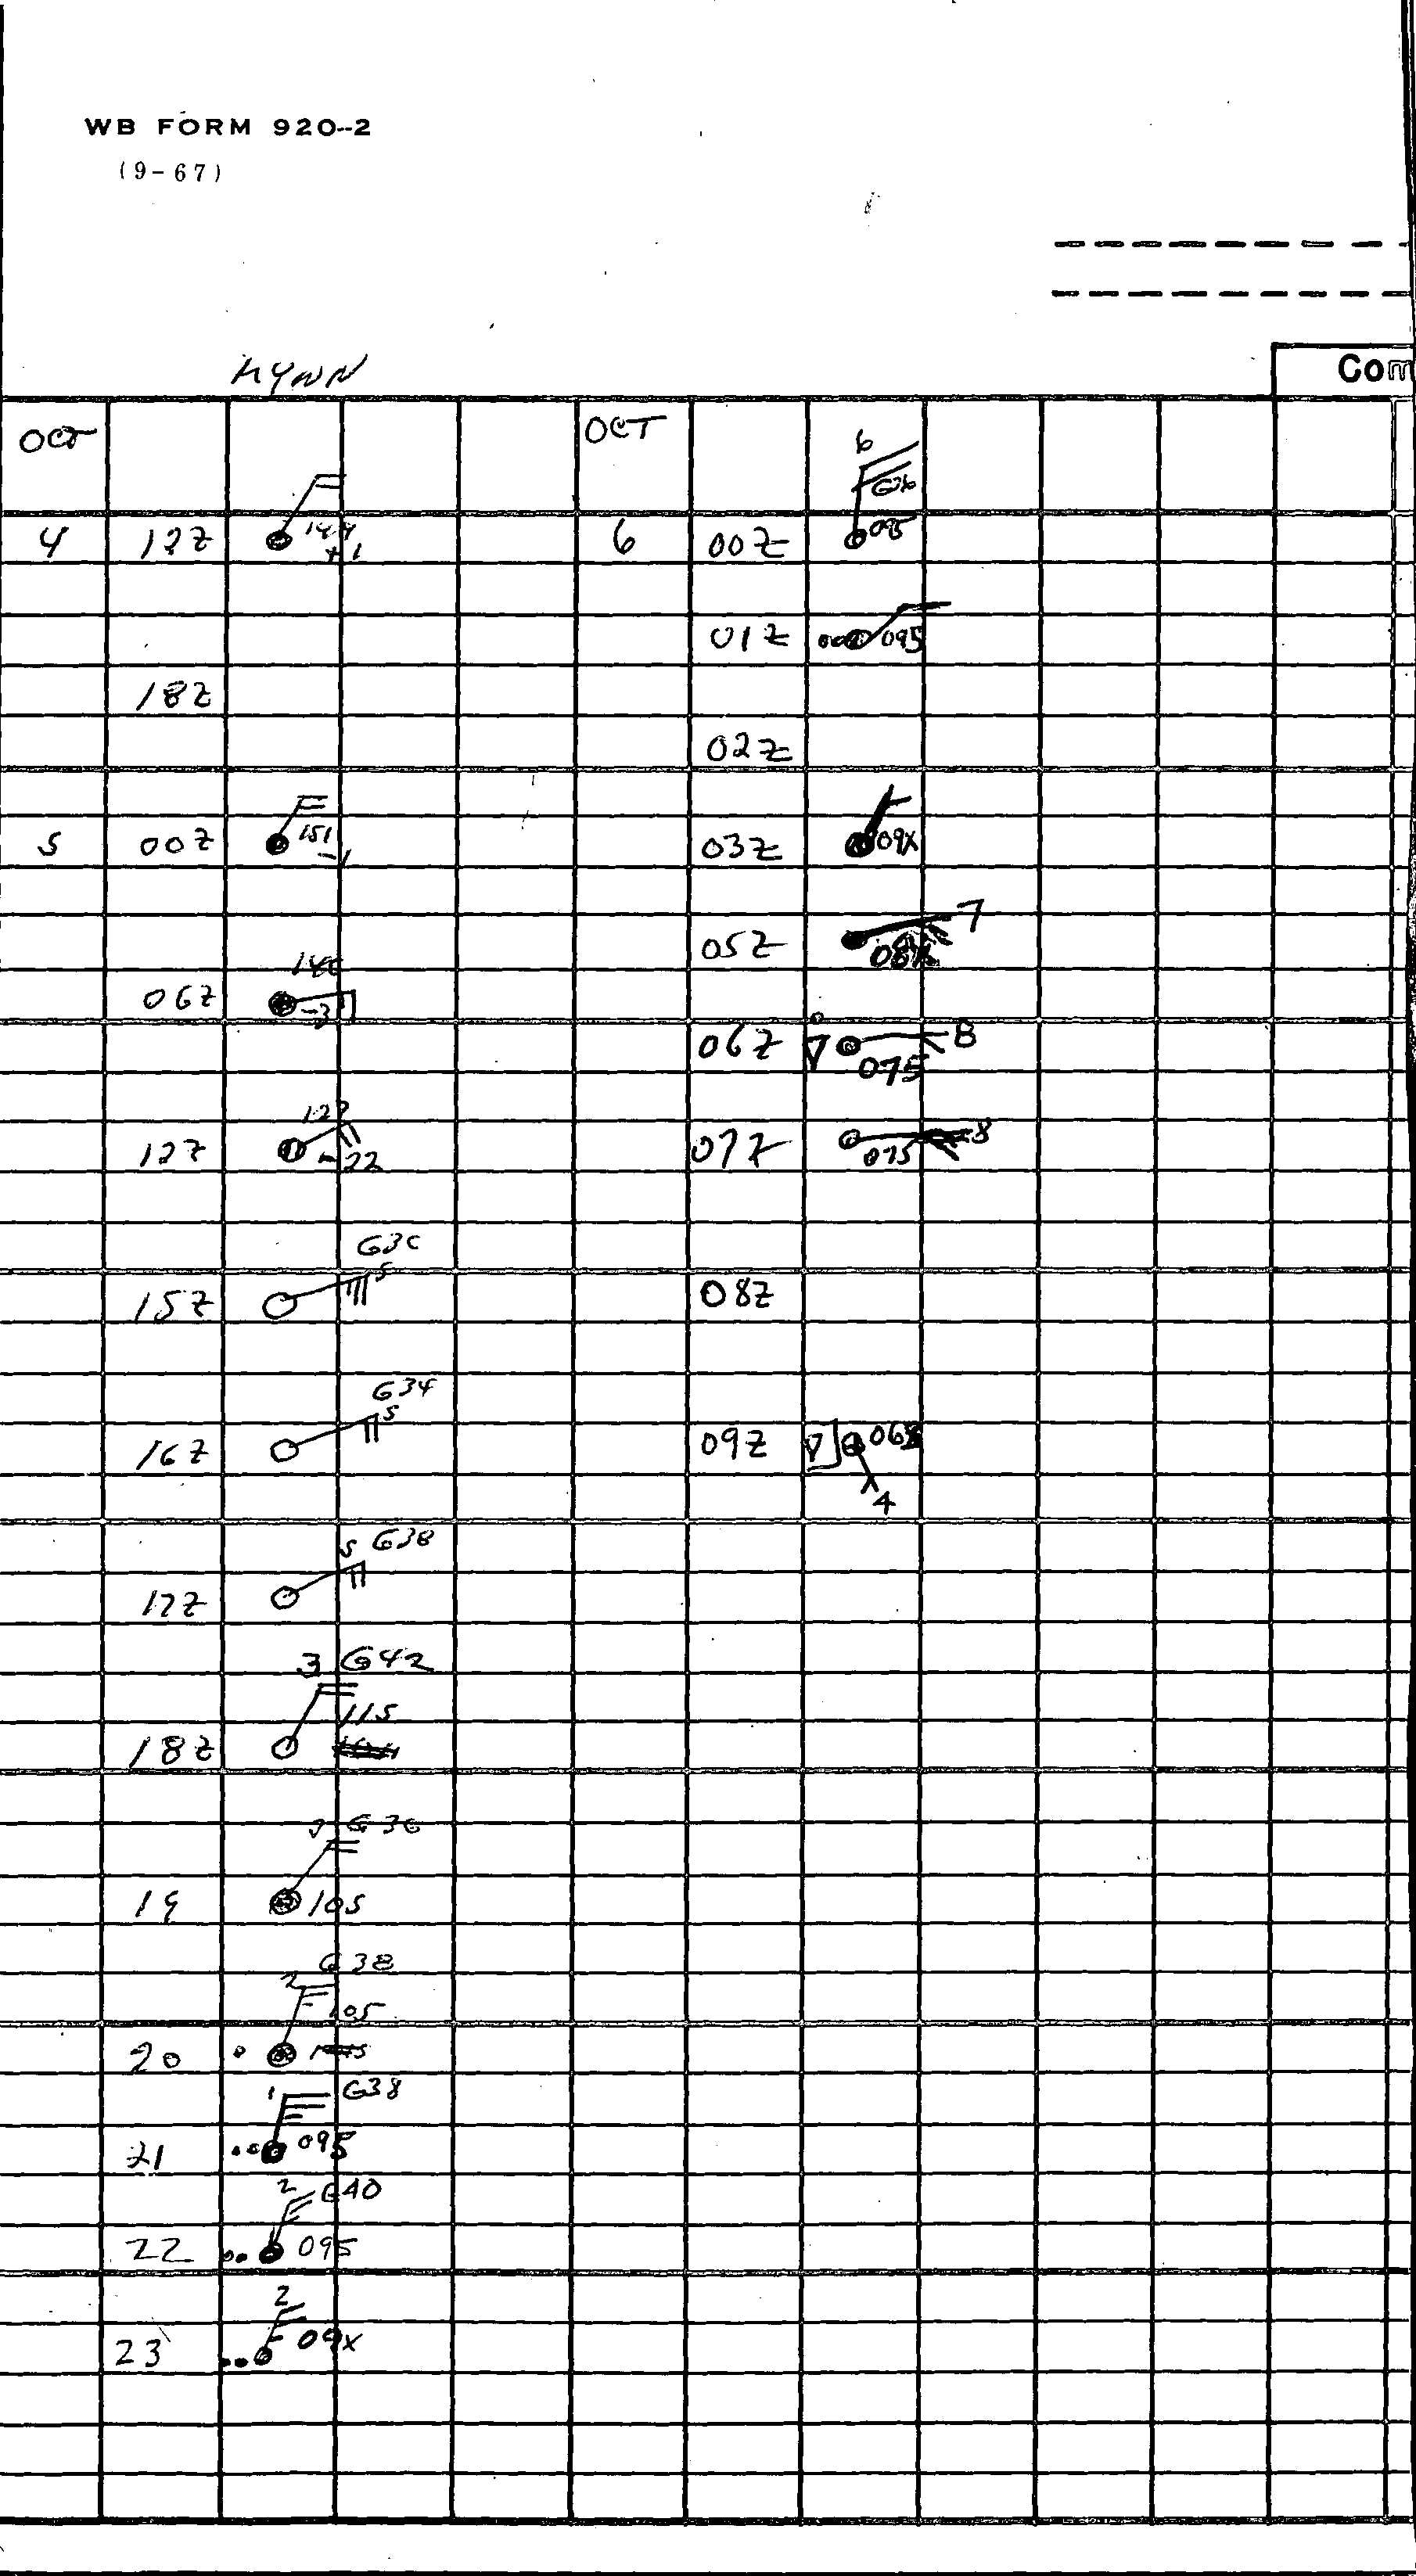 WB FORM 920--2
(9-67)
Com
OCT
4 12Z +1
18Z
5 00Z 151 -1
06Z -3
12Z -22
15Z S
16Z G34 S
17Z S G38
3 G42
115
18Z
19 105
2 G38
105
20
1 G38
21 095
2 G40
22 095
2
23 09X
OCT
6
G26
6 00Z 095
01Z 095
02Z
03Z 09X
05Z 7
06Z 8
075
07Z 8
075
08Z
09Z
4